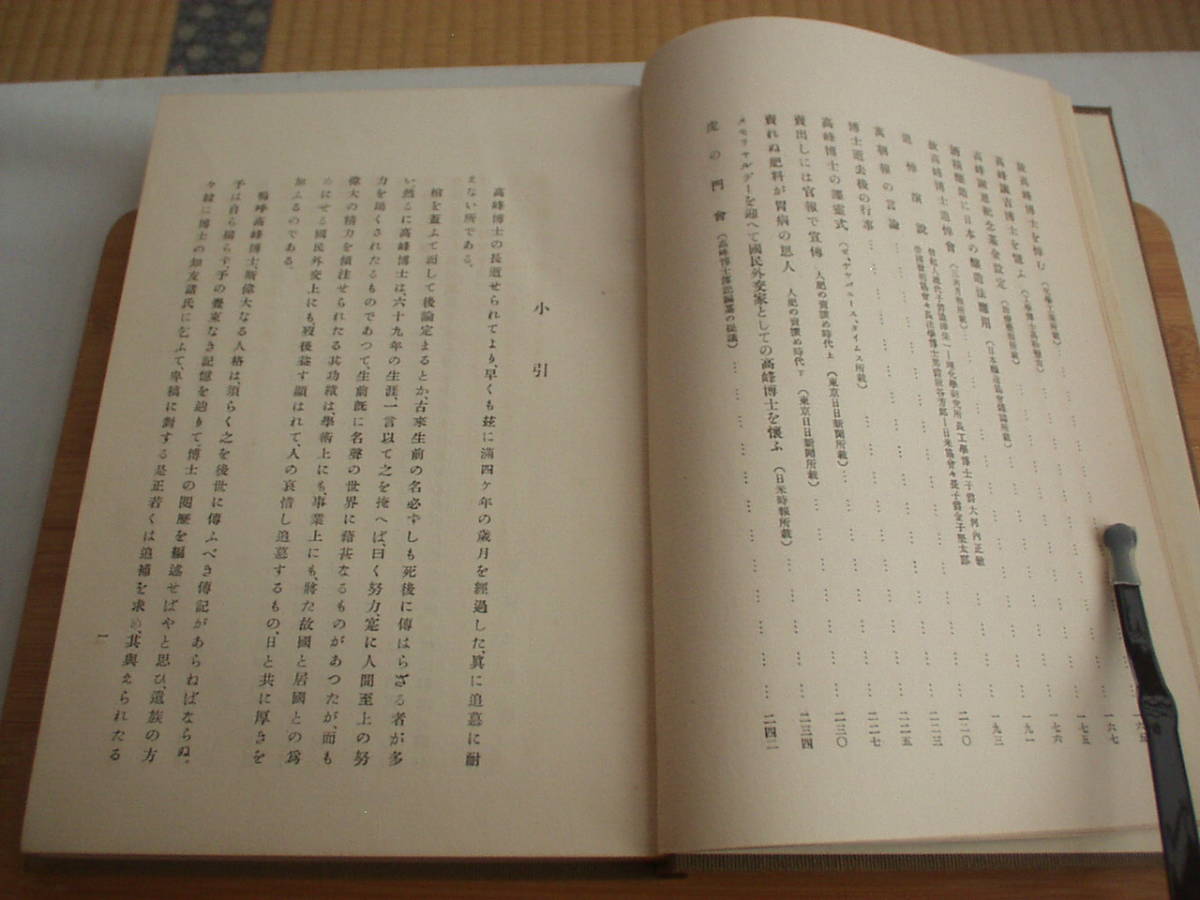 故高峰博士を悼む
高峰讓吉博士を憶ふ
高峰讓吉紀念基金設定
酒精釀造に日本の釀造法應用(日本釀造協會雜誌所載)二一〇
故高峰博士追悼會
追悼演說
萬朝報の言論二二五
博士逝去後の行事二二七
高峰博士の慰靈式(ゼ、デケバニース、タイムス所載)二三〇
賣出しには官報で宣傳 人肥の賣讓め時代上(東京日日新聞所載)二三四
賣れぬ肥料が胃病の恩人 人肥の賣讓め時代下(東京日日新聞所載)
メモリヤルデーを迎へて國民外交家としての高峰博士を懷ふ(日米時報所載)
虎の門會(高峰博士傳記編纂の提議)二四二
小引
高峰博士の長逝せられてより、早くも茲に滿四ケ年の歲月を經過した、眞に追慕に耐
えない所である。
棺を蓋ふて而して後論定まるとか、古來生前の名必ずしも死後に傳はらざる者が多
い、然るに高峰博士は、六十九年の生涯、一言以て之を掩へば、曰く努力、寔に人間至上の努
力を竭くされたるものであつて、生前旣に名聲の世界に藉甚なるものがあつたが、而も
偉大の精力を傾注せられたる其功績は、學術上にも、事業上にも、將た故國と居國との爲
めにせる國民外交上にも、歿後益す顯はれて、人の哀惜し追慕するもの、日と共に厚きを
加ふるのである。
嗚呼高峰博士、斯偉大なる人格は、須らく之を後世に傳ふべき傳記があらねばならぬ、
予は自ら揣らず、予の覺束なき記憶を辿りて、博士の閱歷を編述せばやと思ひ、遺族の方
々竝に博士の知友諸氏に乞ふて、卑稿に對する是正若くは追補を求め、其與えられたる
一